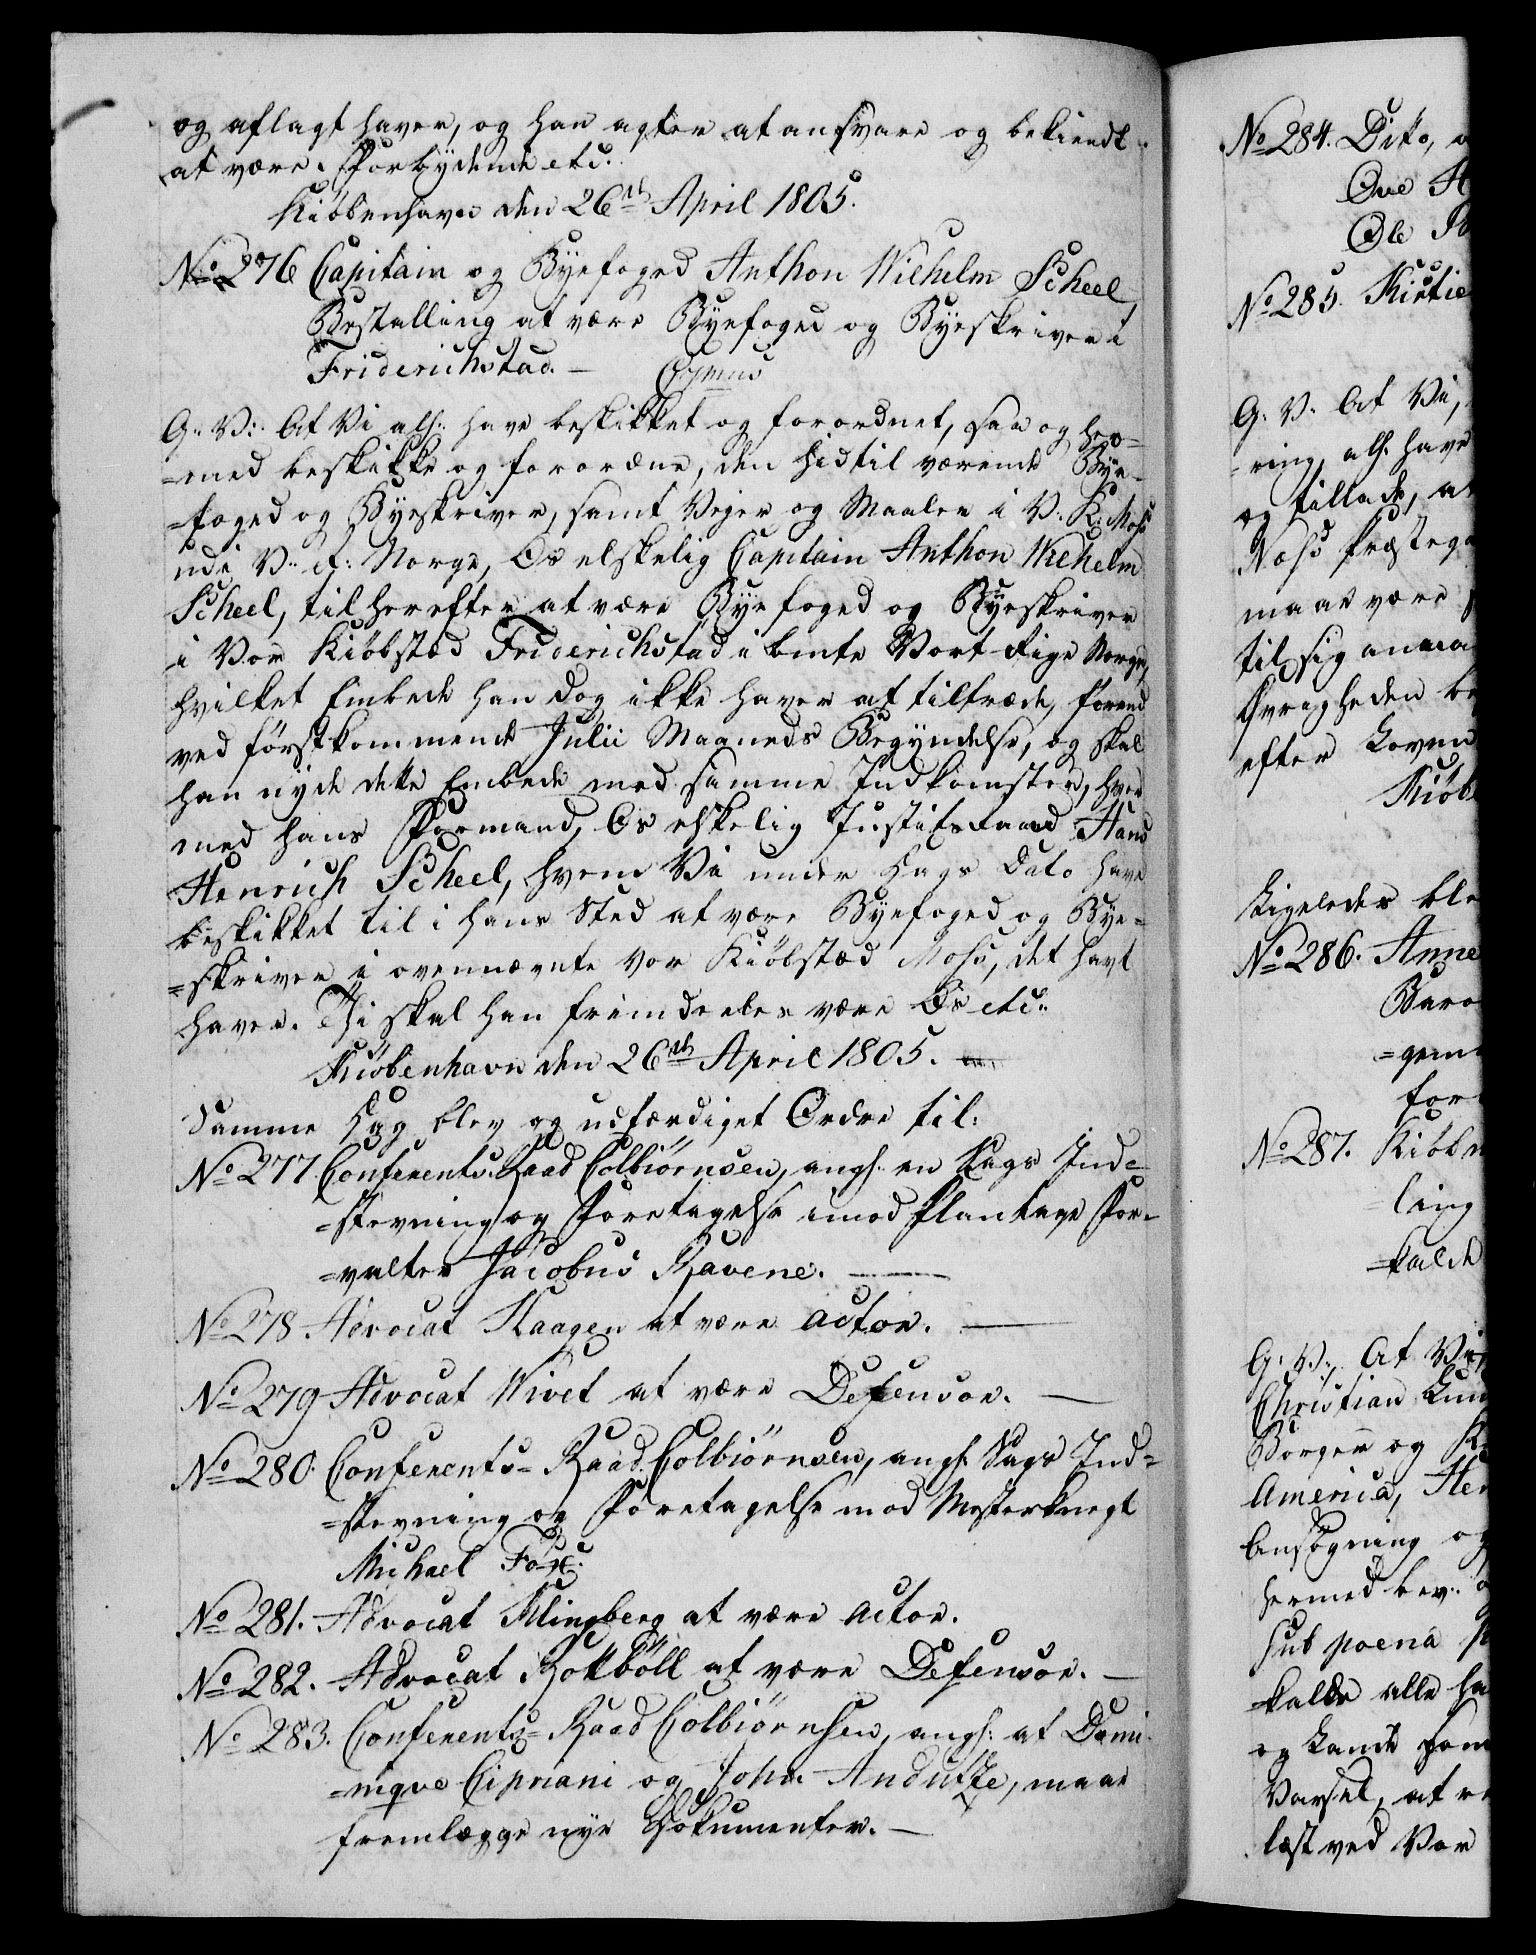 og aflagt haver, og han agter at ansvare og bekiendt
at være. Forbydende etc.
Kiøbenhavn den 26de April 1805.
No 276 Capitain og Byefoged Anthon Wilhelm Scheel,
Bestalling at være Byefoged og Byeskriver i
Friderichstad. —
G: V: At Vi alh: have beskikket og forordnet, saa og her=
=med beskikke og forordne, den hidtil værende Bye=
=foged og Byeskriver, samt Vejer og Maaler i V: K: Moss
udi V: R: Norge, Os elskelig Capitain Anthon Wilhelm
Scheel, til herefter at være Byefoged og Byeskriver
i Vor Kiøbstæd Friderichstad i bmte Vort Rige Norge,
hvilket Embede han dog ikke haver at tiltræde, forend
ved førstkommende Julii Maaneds Begyndelse, og skal
han nyde dette Embede med samme Indkomster, hvor
med hans Formand, Os elskelig Justitsraad Hans
Henrich Scheel, hvem Vi under Dags Dato have
beskikket til i hans Sted at være Byefoged og Bye=
=skriver i ovennævnte vor Kiøbstæd Moss, det havt
haver. Thi skal han fremdeeles være Os etc.
Kiøbenhavn den 26de April 1805.
Samme Dag blev og udfærdiget Ordre til:
No 277. Conferents-Raad Colbiørnsen, angl. en Sags Ind=
=stevning og Foretagelse imod Plantage For=
=valter Jacobus Ravene. —
No 278. Advocat Haagen at være actor. —
No 279 Advocat Wivet at være Defensor. —
No 280. Conferents=Raad Colbiørnsen, angl. Sags Ind=
=stevning og Foretagelse mod Mesterknegt
Michael Fox.
No 281. Advocat Klingberg at være actor.
No 282. Advocat Rottbøll at være Defensor. —
No 283. Conferents=Raad Colbiørnsen, angl: at Domi=
=nique Cipriani og John Andutze, maae
fremlægge nye Dokumenter. —
No 284. Ditto,
Ove
Ole
No 285.
G: V: At Vi,
=ring, alh. have
og tillade, at
præstega
maae være
til sig anna
Øvrigheden be
efter Loven
Kiøb
Ligeledes ble
No 286. Anne
Baro
=gem
for
No 287. Kiøbm
ling
=kalde
G: V: At Vi,
Christian
Borger og
America,
Ansøgning og
hermed bev:
sub poena
=kalde alle ha
og Lande
Varsel, at
læst ved Vor